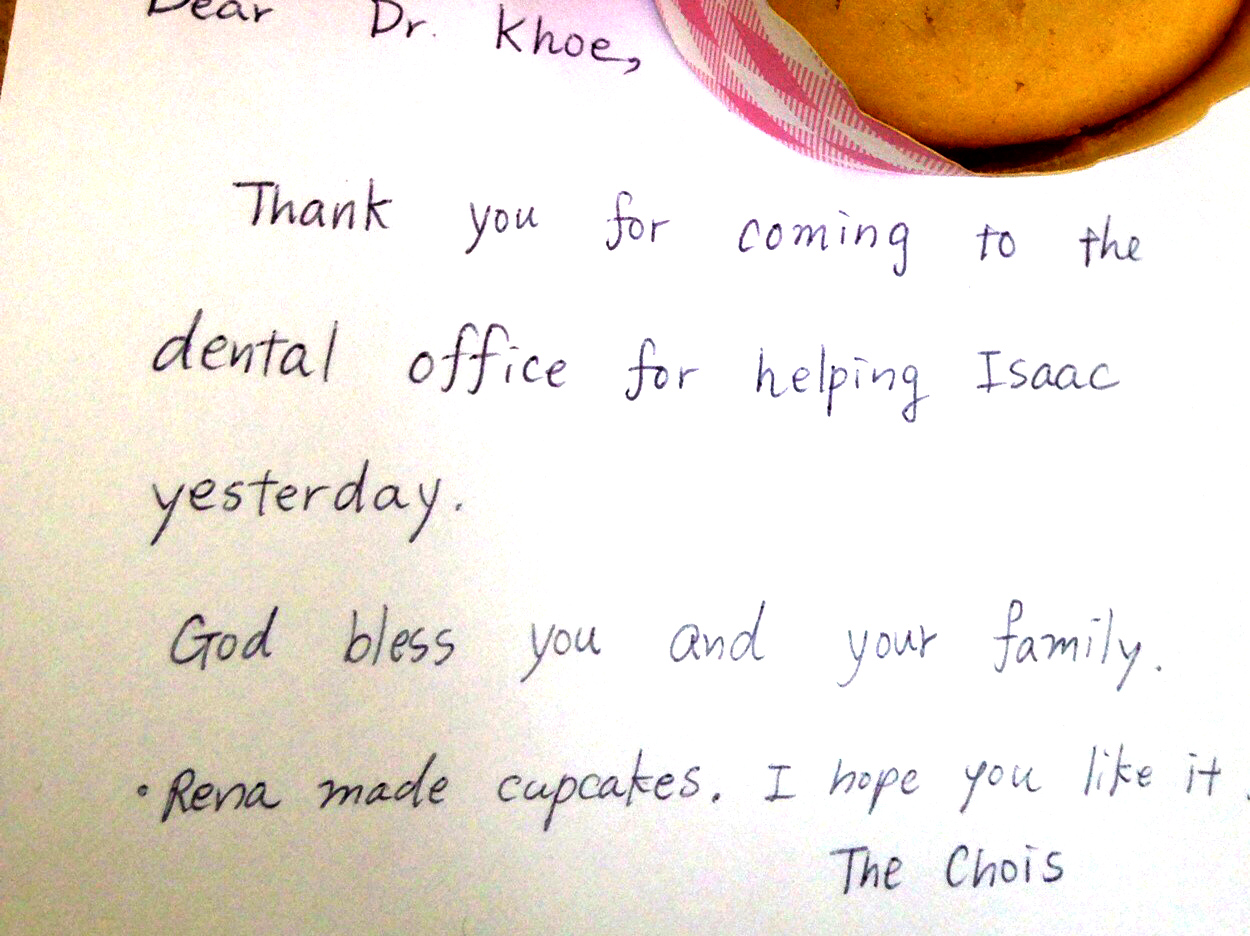 Dear Dr. Khoe,
Thank you for coming to the
dental office for helping Isaac
yesterday.
God bless you and your family.
• Rena made cupcakes. I hope you like it.
The Chois